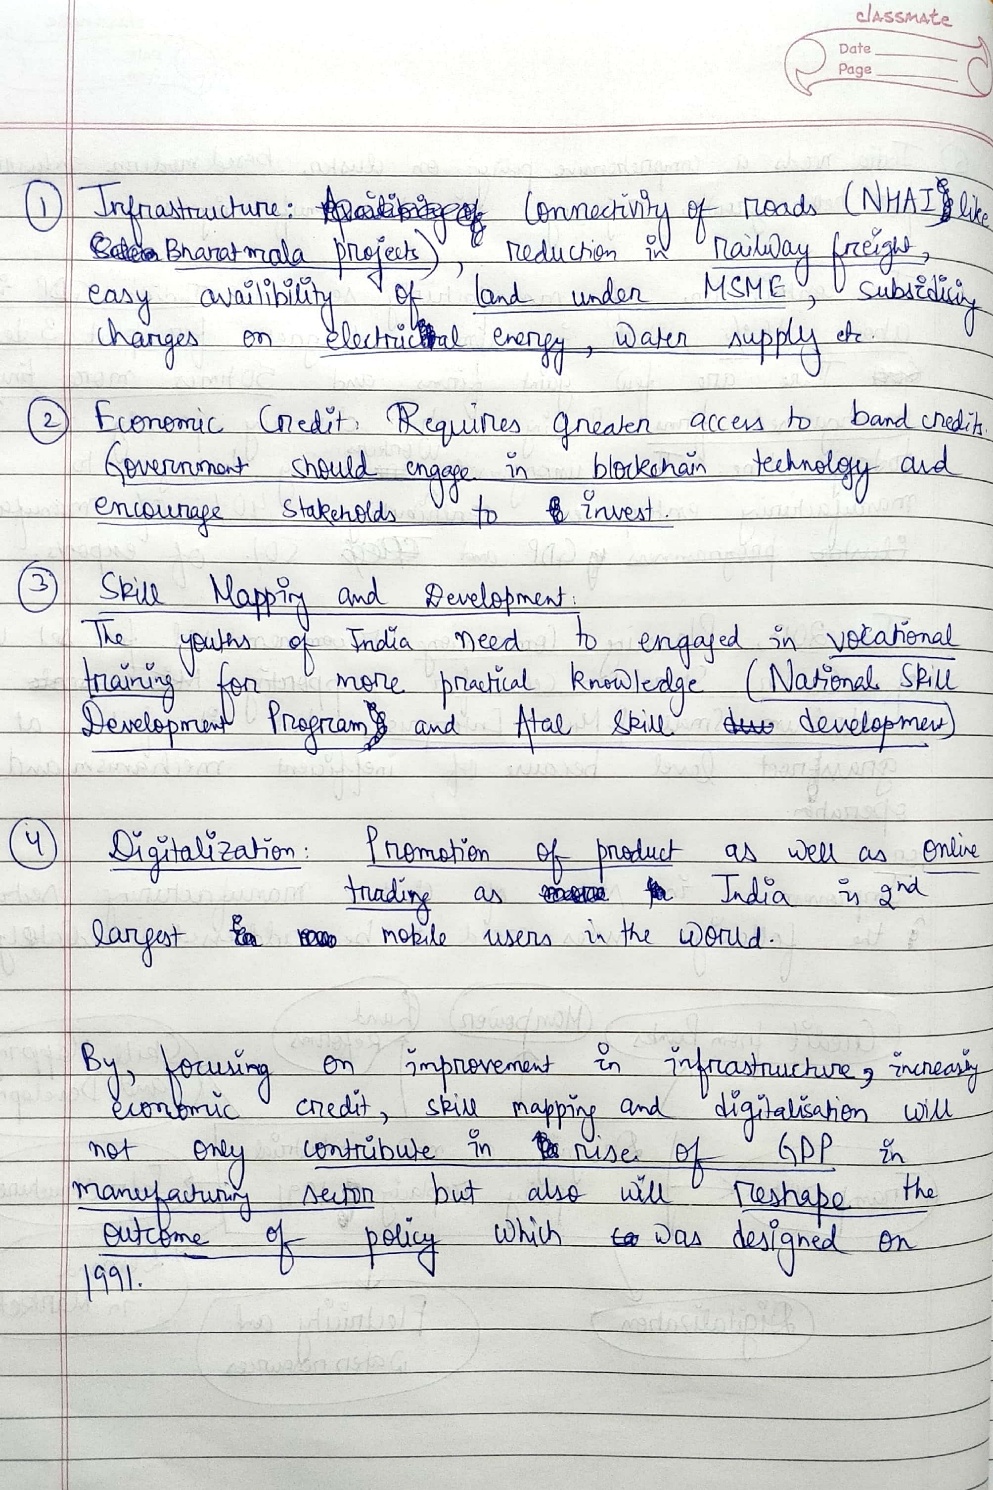 classmate
Date
Page
1 Infrastructure: Connectivity of roads (NHAI like
Bharatmala projects), reduction in railway freight,
easy availibility of land under MSME, subsidising
charges on electrical energy, water supply etc.
2 Economic Credit: Requires greater access to band credits.
Government should engage in blockchain technology and
encourage stakeholds to invest.
3 Skill Mapping and Development:
The youths of India need to engaged in vocational
training for more practical knowledge (National Skill
Development Program and Atal skill development)
4 Digitalization: Promotion of product as well as online
trading as India is 2nd
largest mobile users in the world.
By, focusing on improvement in infrastructure, increasing
economic credit, skill mapping and digitalisation will
not only contribute in rise of GDP in
manufacturing sector but also will reshape the
outcome of policy which was designed on
1991.